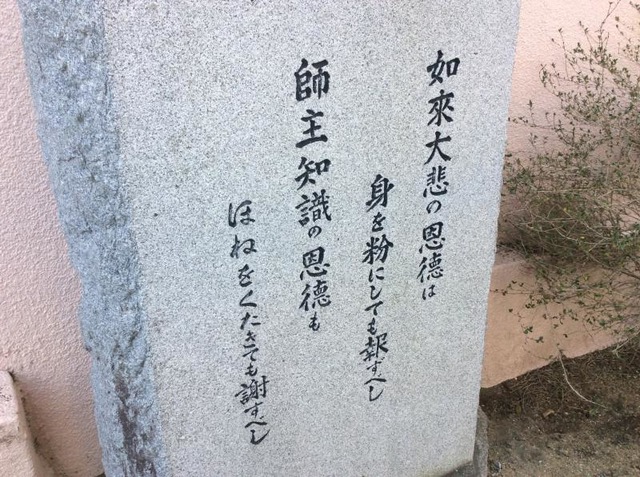 如來大悲の恩德は
身を粉にしても報ずべし
師主知識の恩德も
ほねをくたきても謝すべし